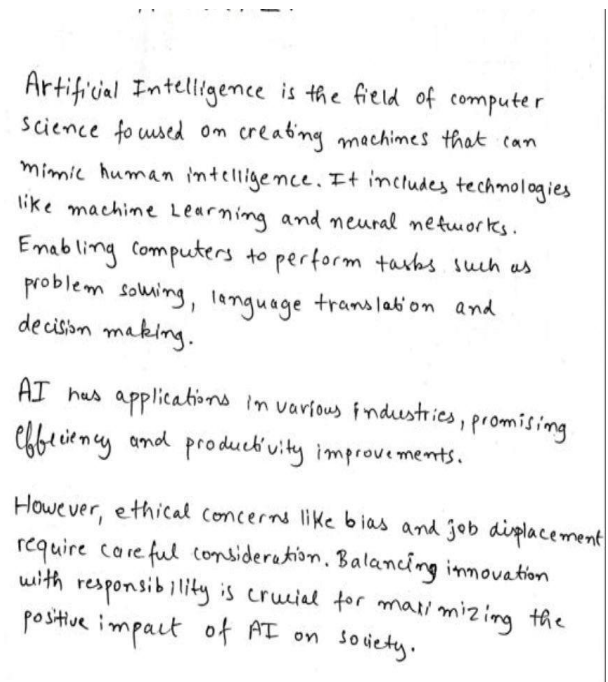 Artificial Intelligence is the field of computer
science focused on creating machines that can
mimic human intelligence. It includes technologies
like machine Learning and neural networks.
Enabling Computers to perform tasks such as
problem solving, language translation and
decision making.
AI has applications in various industries, promising
efficiency and productivity improvements.
However, ethical concerns like bias and job displacement
require careful consideration. Balancing innovation
with responsibility is crucial for maximizing the
positive impact of AI on society.